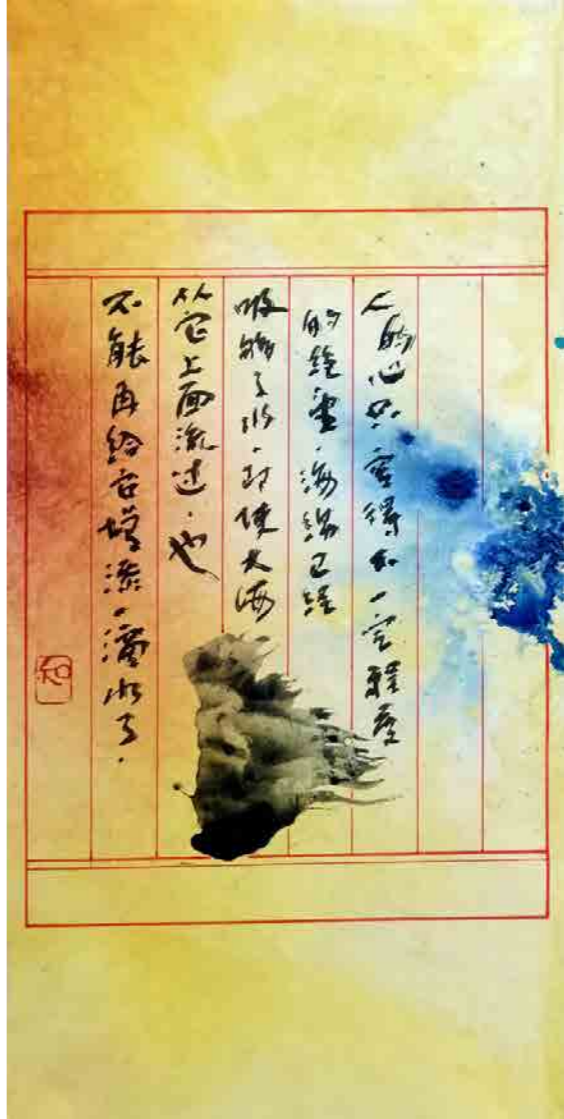 人的心只容得下一定程度
的绝望，海绵已经
吸够了水，即使大海
从它上面流过，也
不能再给它增添一滴水了。
知